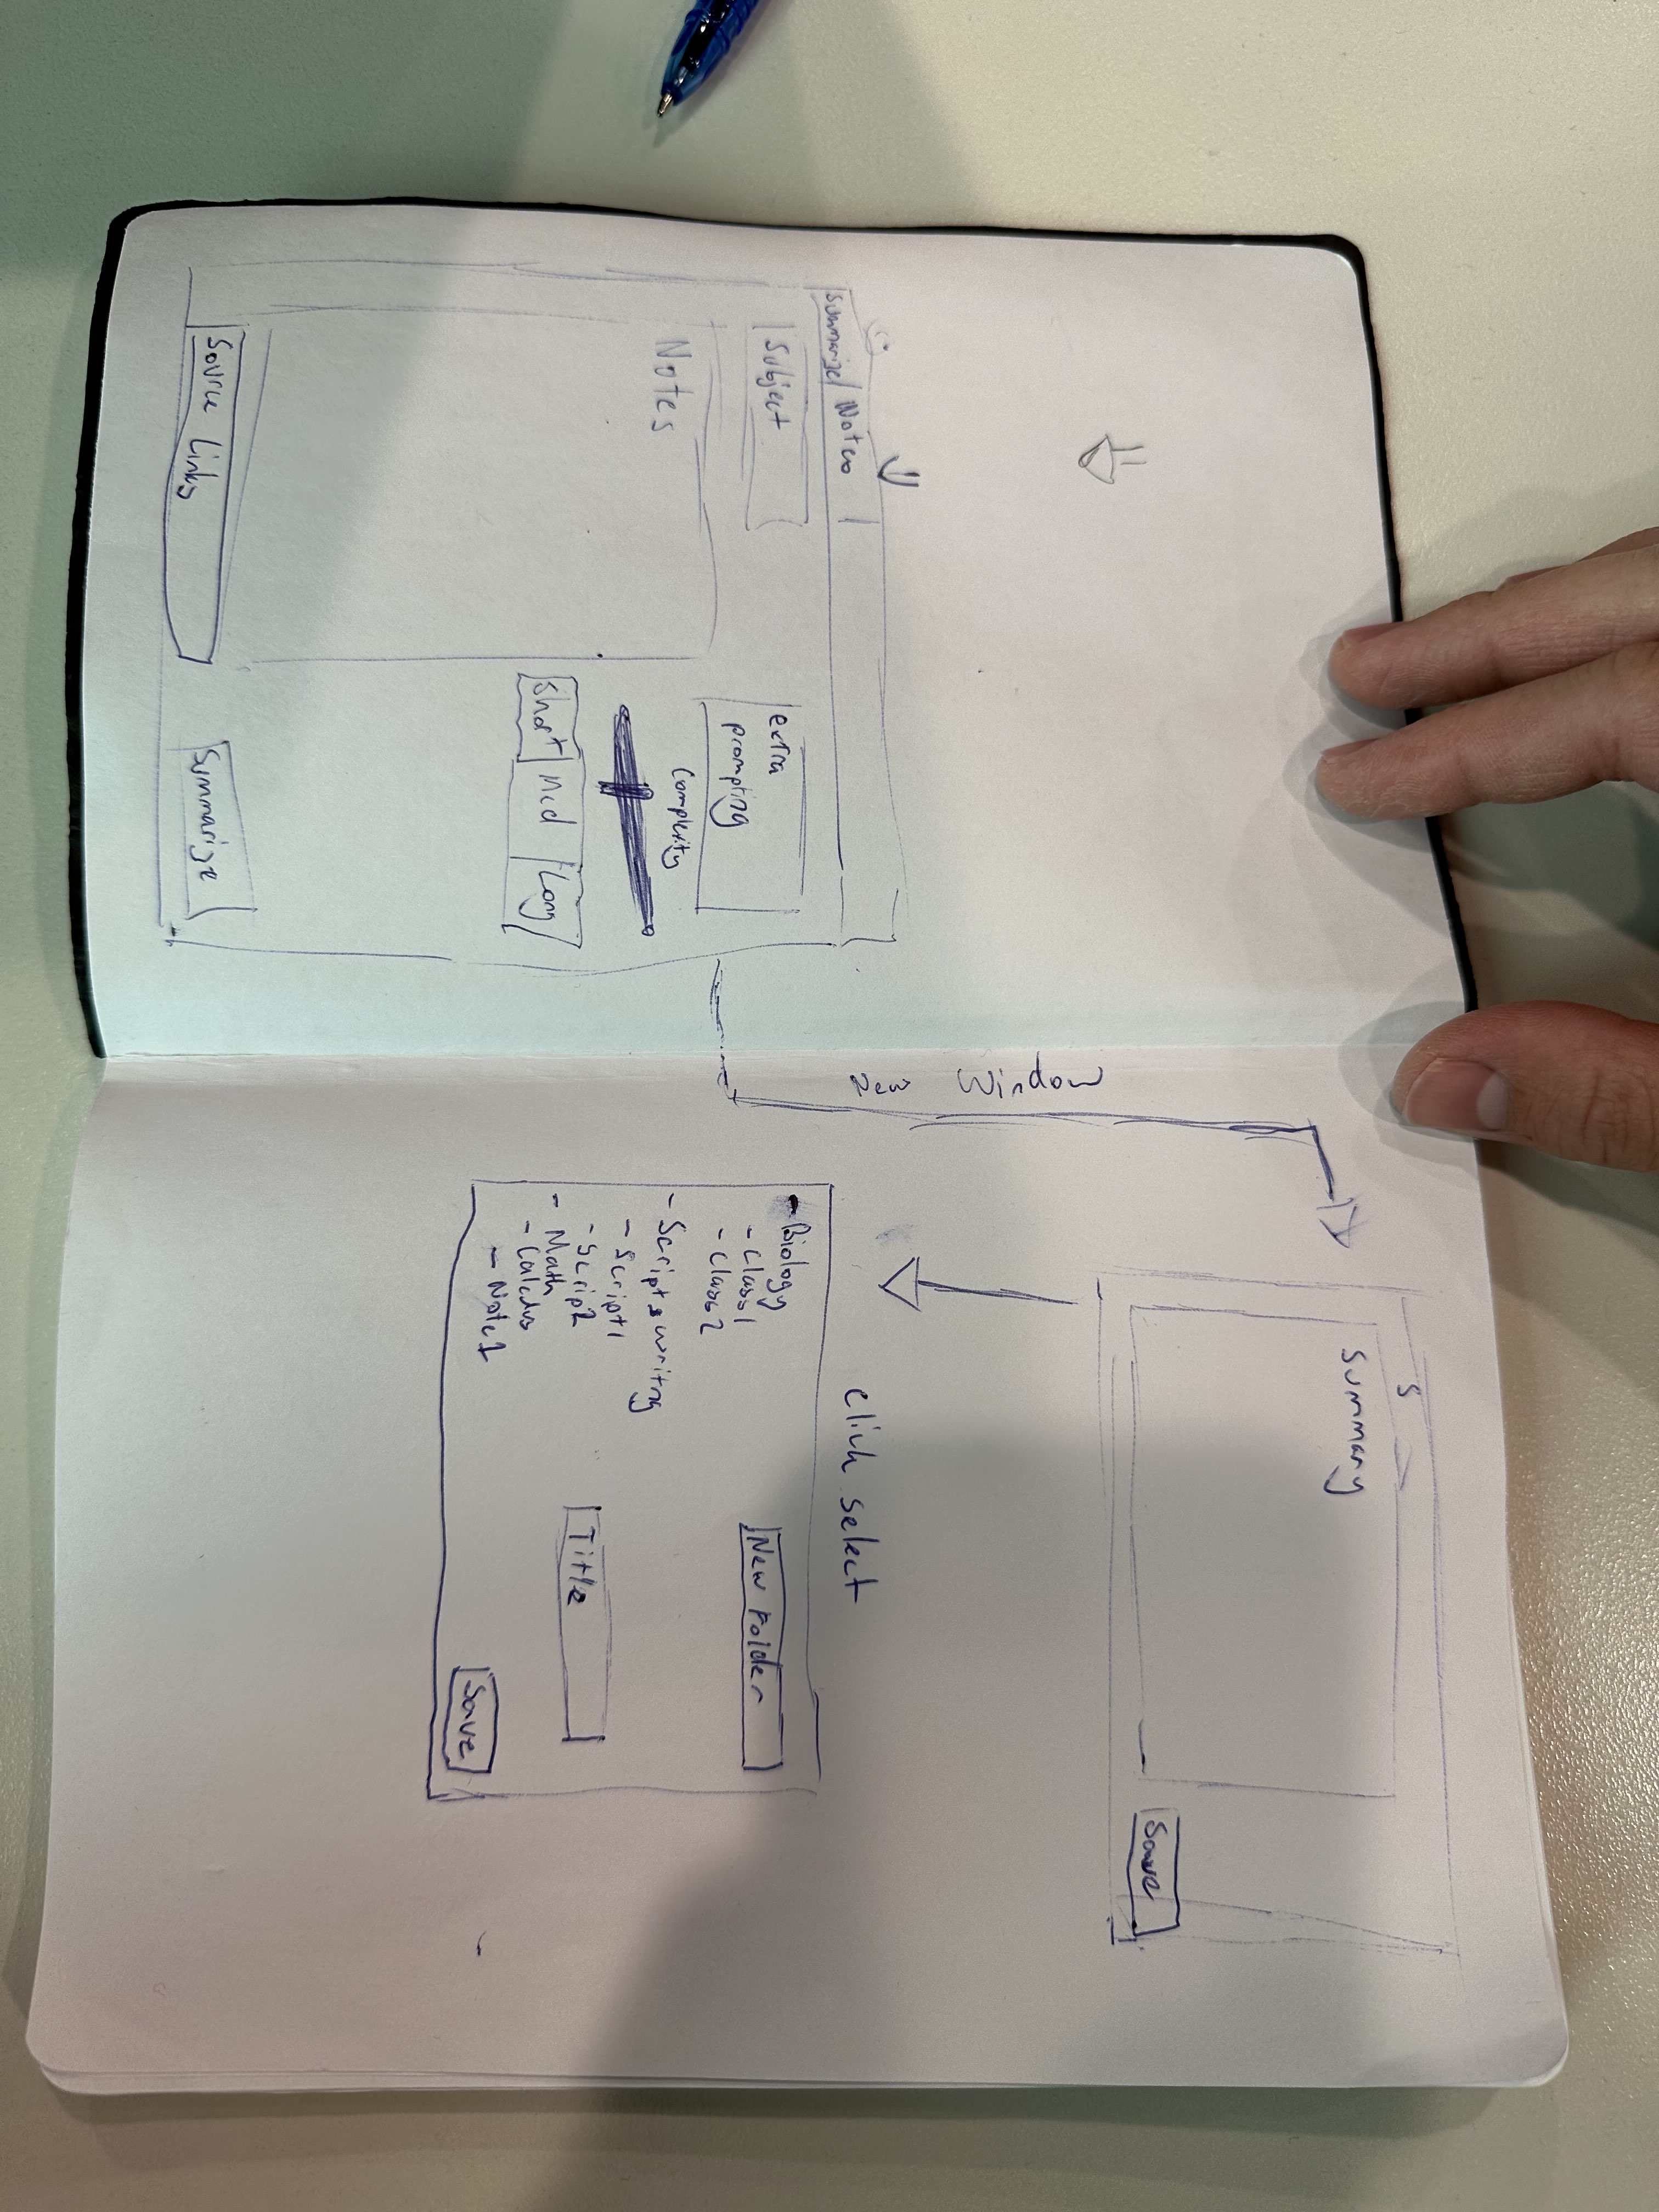 Summarize
Notes
Subject
Notes
Source Links
extra
prompting
Complexity
Short
Med
Long
Summarize
New Window
S
Summary
Save
Click select
- Biology
- Class 1
- Class 2
- Scriptswriting
- Script 1
- Scrip2
- Math
- Calculus
- Note 1
New Folder
Title
Save